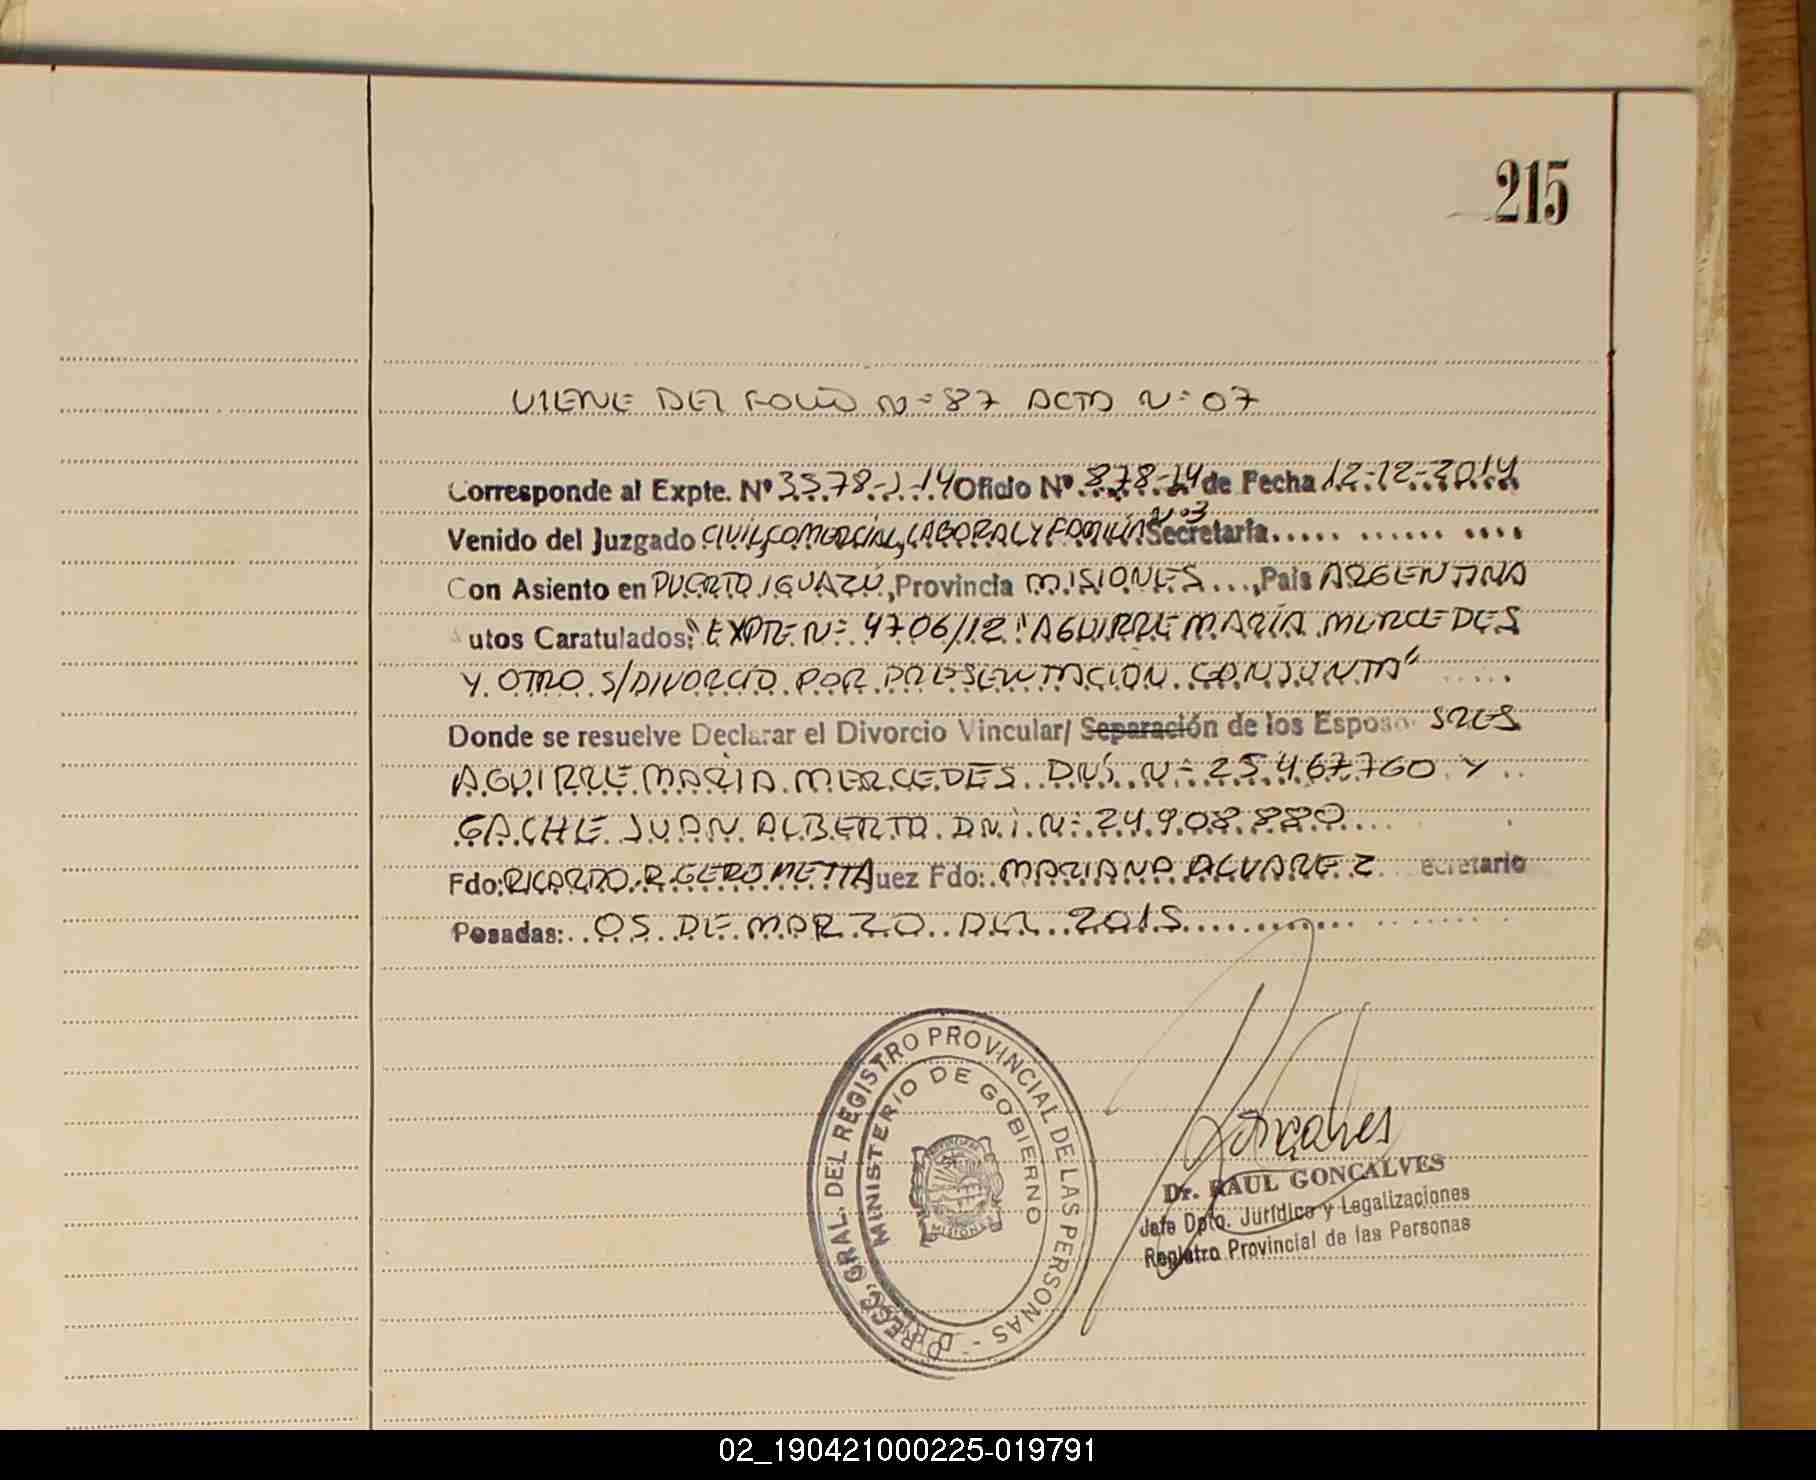 215
VIENE DEL FOLIO Nº 87 ACTA Nº 07
Corresponde al Expte. Nº 3578-J-14 Oficio Nº 878-14 de Fecha 12-12-2014
Venido del Juzgado CIVIL, COMERCIAL, LABORAL Y FAMILIA Nº 3 Secretaria
Con Asiento en PUERTO IGUAZÚ, Provincia MISIONES, Pais ARGENTINA
utos Caratulados: "EXPTE Nº 4706/12 "AGUIRRE MARÍA MERCEDES
Y OTRO S/DIVORCIO POR PRESENTACIÓN CONJUNTA"
Donde se resuelve Declarar el Divorcio Vincular/ Separación de los Esposo SRES
AGUIRRE MARÍA MERCEDES DNI Nº 25.467.760 Y
GACHE JUAN ALBERTO DNI Nº 24.908.880
Fdo: RICARDO R GEROMETTA Juez Fdo: MARIANA ALVAREZ ecretario
Posadas: 05 DE MARZO DEL 2015
DIREC. GRAL. DEL REGISTRO PROVINCIAL DE LAS PERSONAS -
MINISTERIO DE GOBIERNO
MISIONES
Gonçalves
Dr. RAUL GONCALVES
Jefe Dpto. Jurídico y Legalizaciones
Registro Provincial de las Personas
02_190421000225-019791